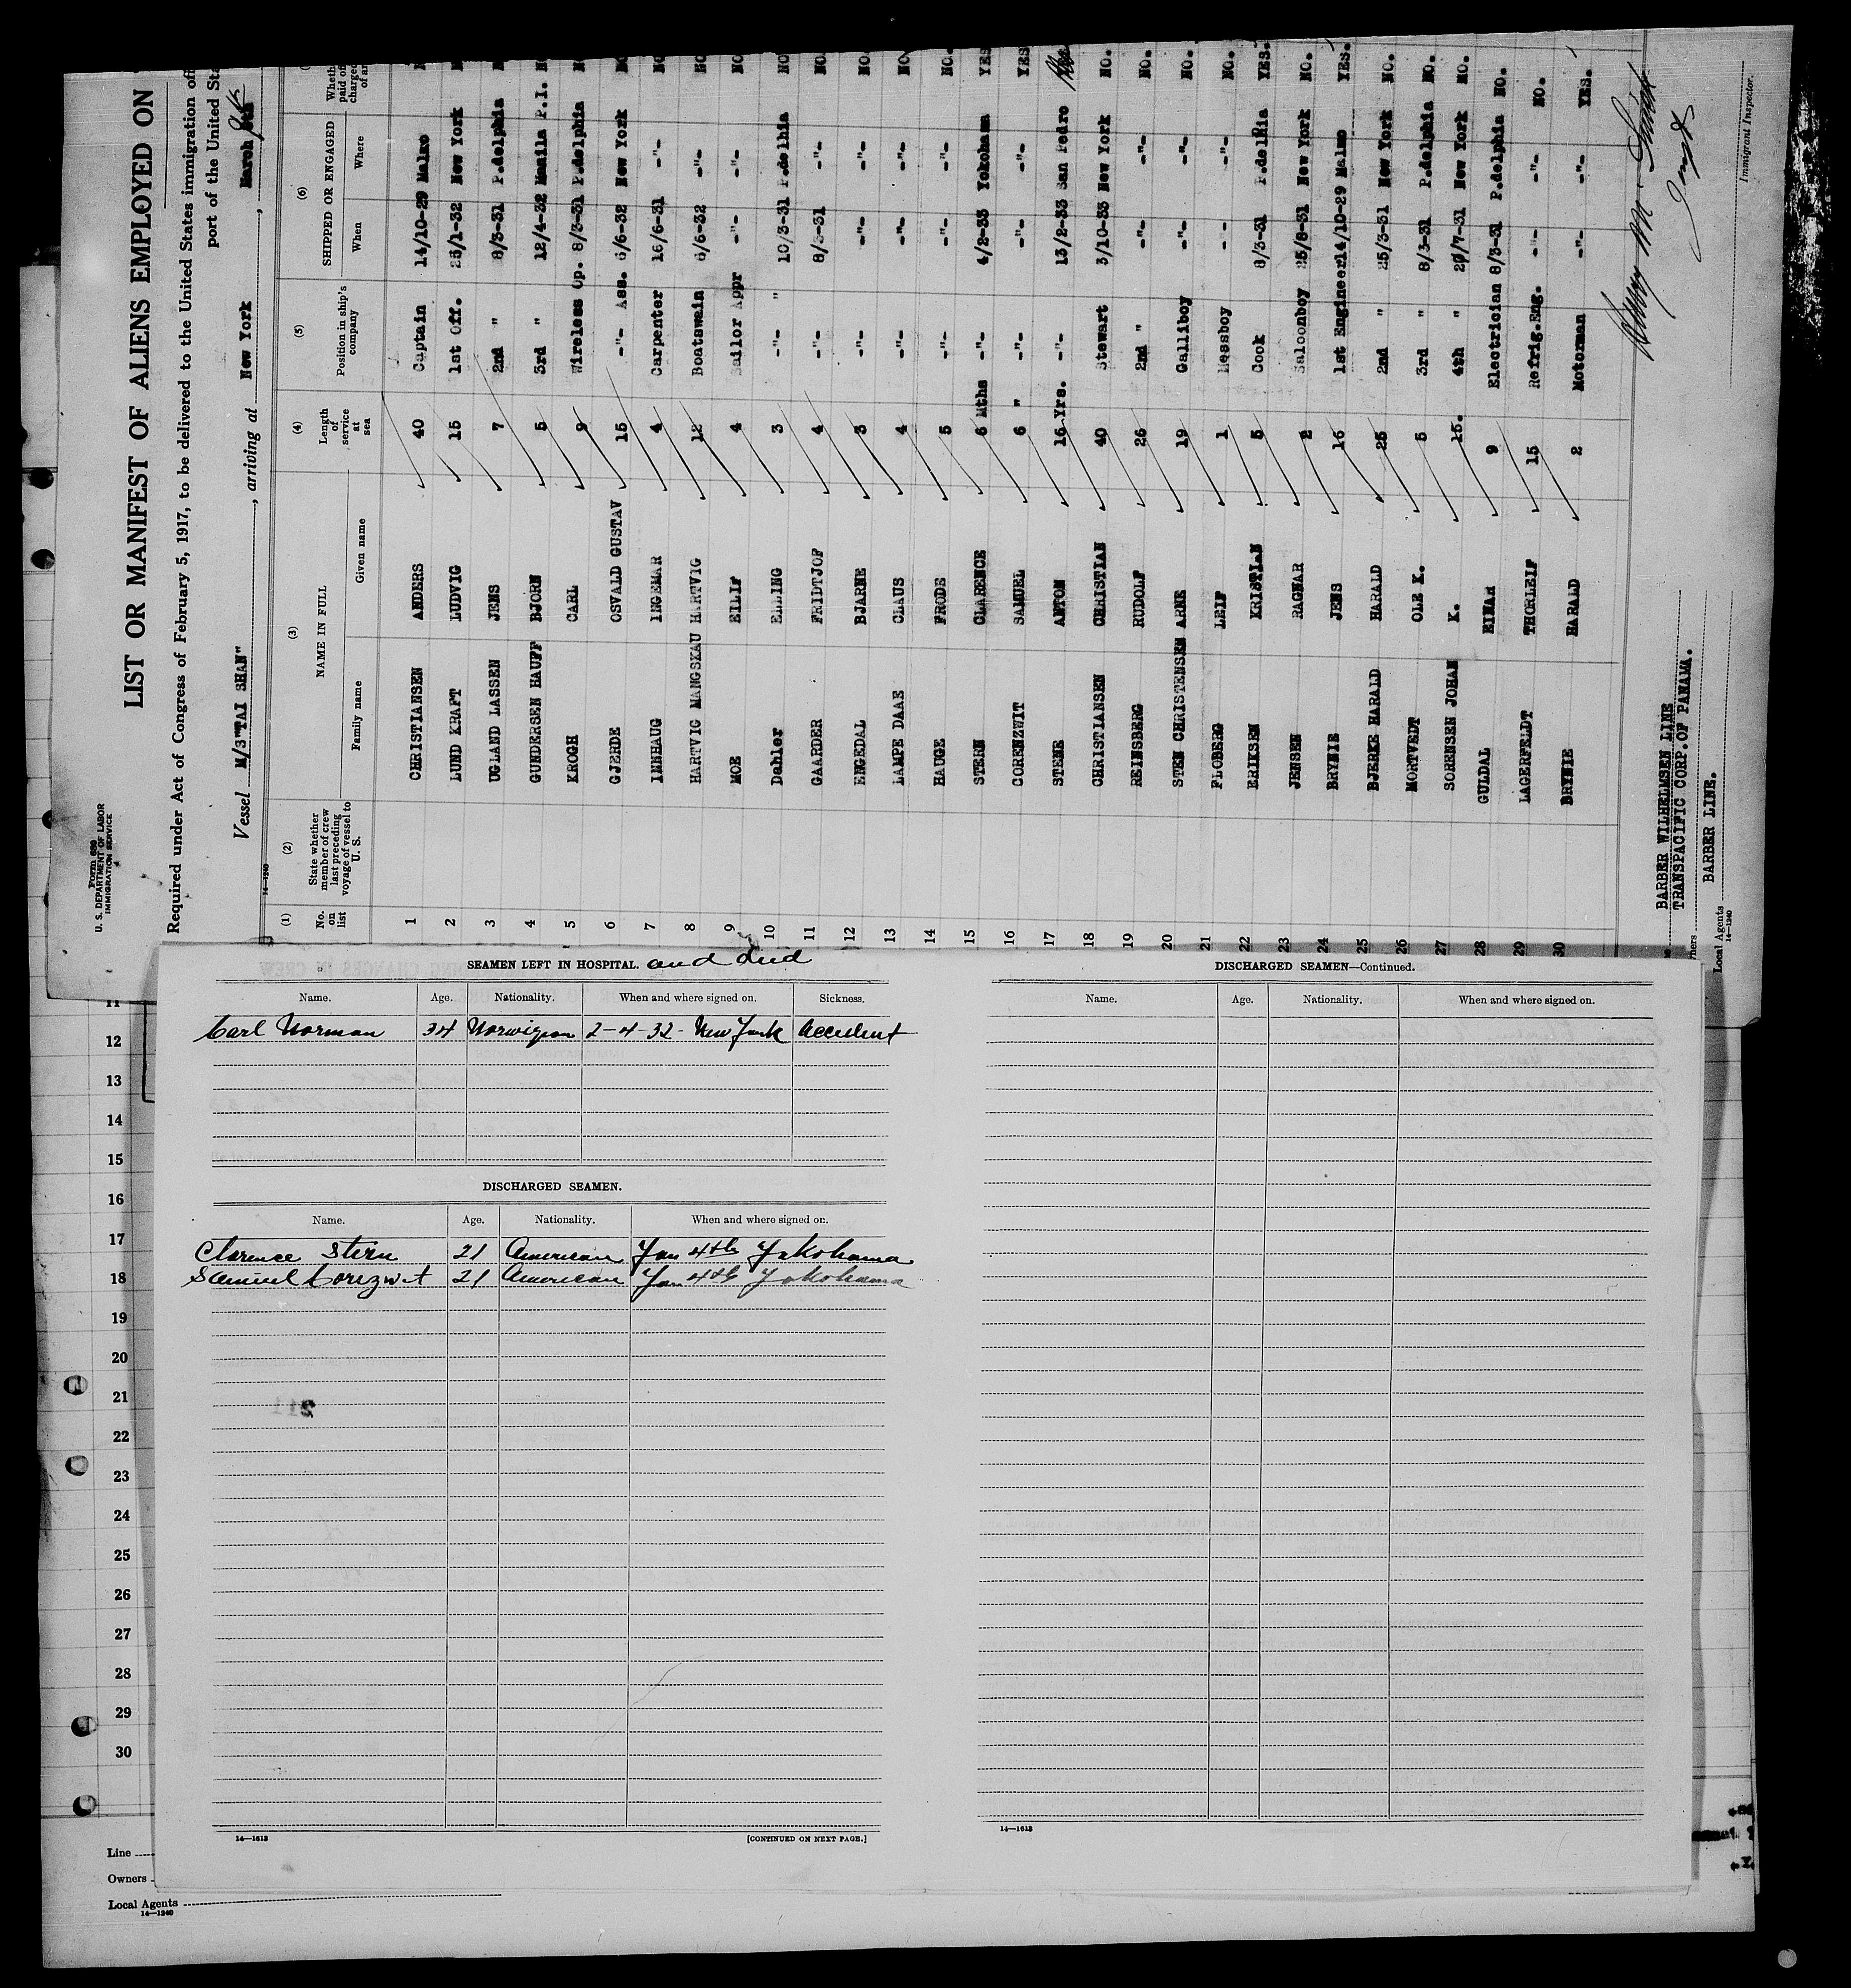 Form 689
U. S. DEPARTMENT OF LABOR
IMMIGRATION SERVICE
LIST OR MANIFEST OF ALIENS EMPLOYED ON
Required under Act of Congress of February 5, 1917, to be delivered to the United States immigration
port of the United
Vessel M/S"TAI SHAN", arriving at New York, March 9th
14—1240
(1) (2) (3) (4) (5) (6)
No. on list State whether member of crew last preceding voyage of vessel to U. S. NAME IN FULL Length of service at sea Position in ship's company SHIPPED OR ENGAGED
Family name Given name When Where
1 CHRISTIANSEN ANDERS 40 Captain 14/10-29 Malmo
2 LUND KRAFT LUDVIG 15 1st Off. 25/1-32 New York
3 UGLAND LASSEN JENS 7 2nd " 8/3-31 P.delphia
4 GUNDERSEN HAUFF BJORN 5 3rd " 12/4-32 Manila P.I.
5 KROGH CARL 9 Wireless Op. 8/3-31 P.delphia
6 GJERDE OSVALD GUSTAV 15 -"- Ass. 6/6-32 New York NO
7 INNHAUG INGEMAR 4 Carpenter 16/6-31 -"- NO
8 HARTVIG MANGSKAU HARTVIG 12 Boatswain 6/6-32 -"- NO
9 MOE EILIF 4 Sailor Appr -"- -"- NO
10 Dahler ELLING 3 -"- " 10/3-31 P.delhia NO
11 GAARDER FRIDTJOF 4 -"- 8/3-31 -"- NO.
12 ENGEDAL BJARNE 3 -"- -"- -"- NO
13 LAMPE DAAE CLAUS 4 -"- -"- -"- NO
14 HAUGE FRODE 5 -"- -"- -"- NO.
15 STERN CLARENCE 6 Mths -"- 4/2-33 Yokohama YES
16 CORENZWIT SAMUEL 6 " -"- -"- -"- YES
17 STENE ANTON 16 Yrs. -"- 13/2-33 San Pedro
18 CHRISTIANSEN CHRISTIAN 40 Stewart 3/10-33 New York NO.
19 REINSBERG RUDOLF 26 2nd " -"- -"- NO.
20 STEN CHRISTENSEN ARNE 19 Galliboy -"- -"- NO.
21 FLOBERG LEIF 1 Messboy -"- -"- NO.
22 ERIKSEN KRISTIAN 5 Cook 8/3-31 P.delhia YES.
23 JENSEN RAGNAR 2 Saloonboy 25/8-31 New York NO.
24 BRYNIE JENS 16 1st Engineer 14/10-29 Malmo YES.
25 BJERKE HARALD HARALD 25 2nd " 25/3-31 New York NO.
26 MORTVEDT OLE K. 5 3rd " 8/3-31 P.delphia NO.
27 SORENSEN JOHAN K. 15. 4th " /7-31 New York NO.
28 GULDAL EINAR 9 Electrician 8/3-31 P.delphia NO.
29 LAGERFELDT THORLEIF 15 Refrig.Eng. -"- -"- NO.
30 BRYNIE HARALD 2 Motorman -"- -"- YES.
BARBER WILHELMSEN LINE
TRANSPACIFIC CORP.OF PANAMA.
Local Agents BARBER LINE.
14—1240
Immigrant Inspector.
SEAMEN LEFT IN HOSPITAL. and died
Name. Age. Nationality. When and where signed on. Sickness.
Carl Norman 34 Norwigian 2-4-32- New York Accident
DISCHARGED SEAMEN.
Name. Age. Nationality. When and where signed on.
Clarence Stern 21 American Jan 4th Yokohama
Samuel Corezwit 21 American Jan 4th Yokohama
14—1613
[CONTINUED ON NEXT PAGE.]
DISCHARGED SEAMEN—Continued.
Name. Age. Nationality. When and where signed on.
14—1613
11
12
13
14
15
16
17
18
19
20
21
22
23
24
25
26
27
28
29
30
Line
Owners
Local Agents
14—1240